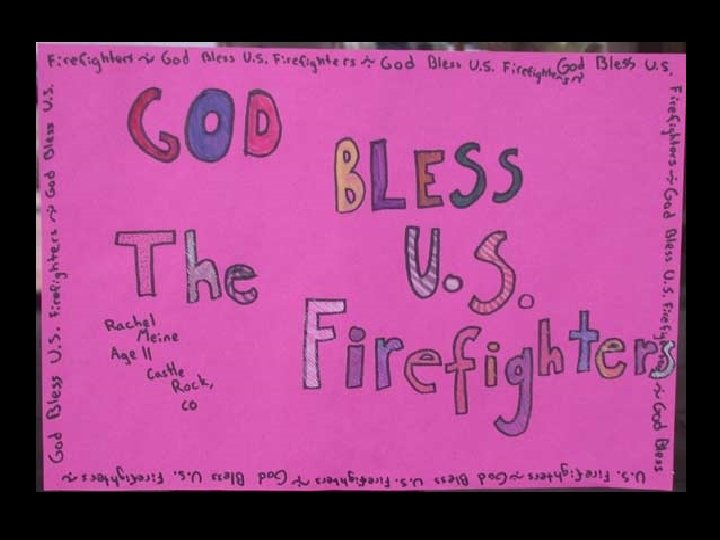 Firefighters ~ God Bless U.S. Firefighters ~ God Bless U.S. Firefighters ~ God Bless U.S.
Firefighters ~ God Bless U.S. Firefighters ~ God Bless
U.S. Firefighters ~ God Bless U.S. Firefighters ~ God Bless U.S. Firefighters ~
God Bless U.S. Firefighters ~ God Bless U.S.
GOD
BLESS
The U.S.
Firefighters
Rachel
Meine
Age 11
Castle
Rock,
CO